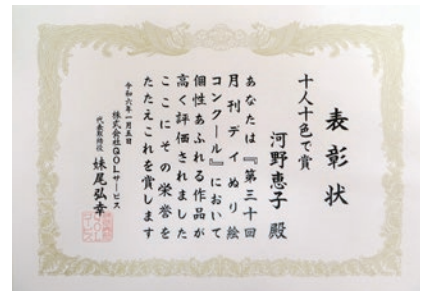 表彰状
十人十色で賞
河野恵子 殿
あなたは『第三十回
月刊デイぬり絵
コンクール』において
個性あふれる作品が
高く評価されました
ここにその栄誉を
たたえこれを賞します
令和六年一月五日
株式会社QOLサービス
代表取締役 妹尾弘幸